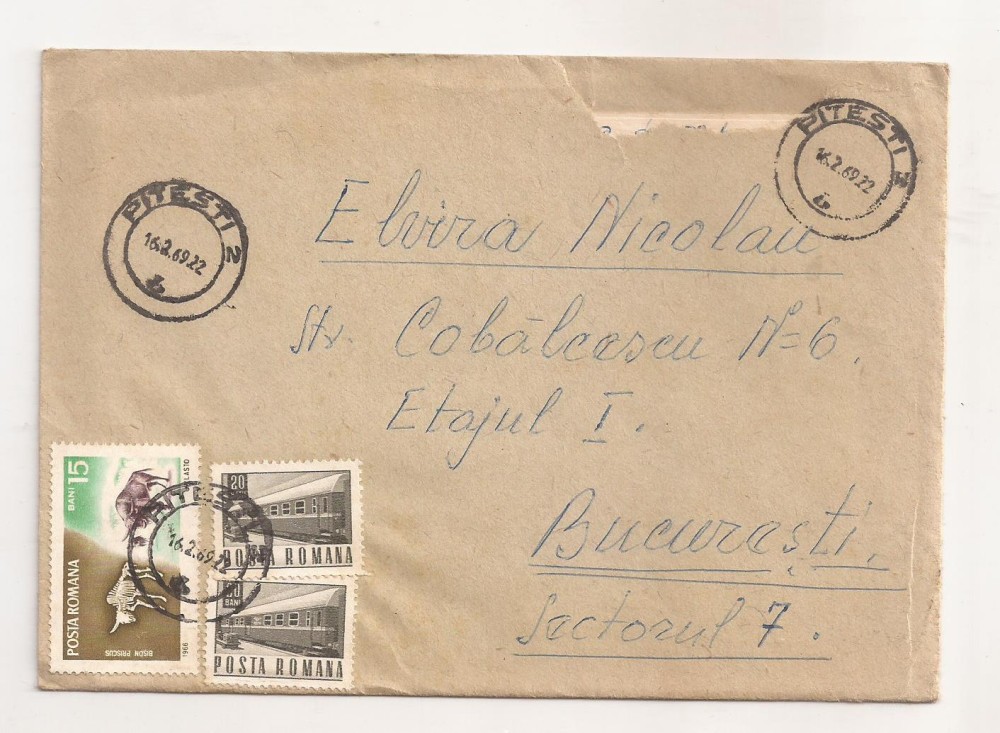 PITESTI 2
16.2.69.22
PITESTI 2
16.2.69.22
Elvira Nicolau
Str. Cobălcescu Nº=6,
Etajul I.
București,
Sectorul 7.
BANI 15
POSTA ROMANA
BISON PRISCUS
1966
PITESTI
16.2.69.22
20
POSTA ROMANA
20
BANI
POSTA ROMANA